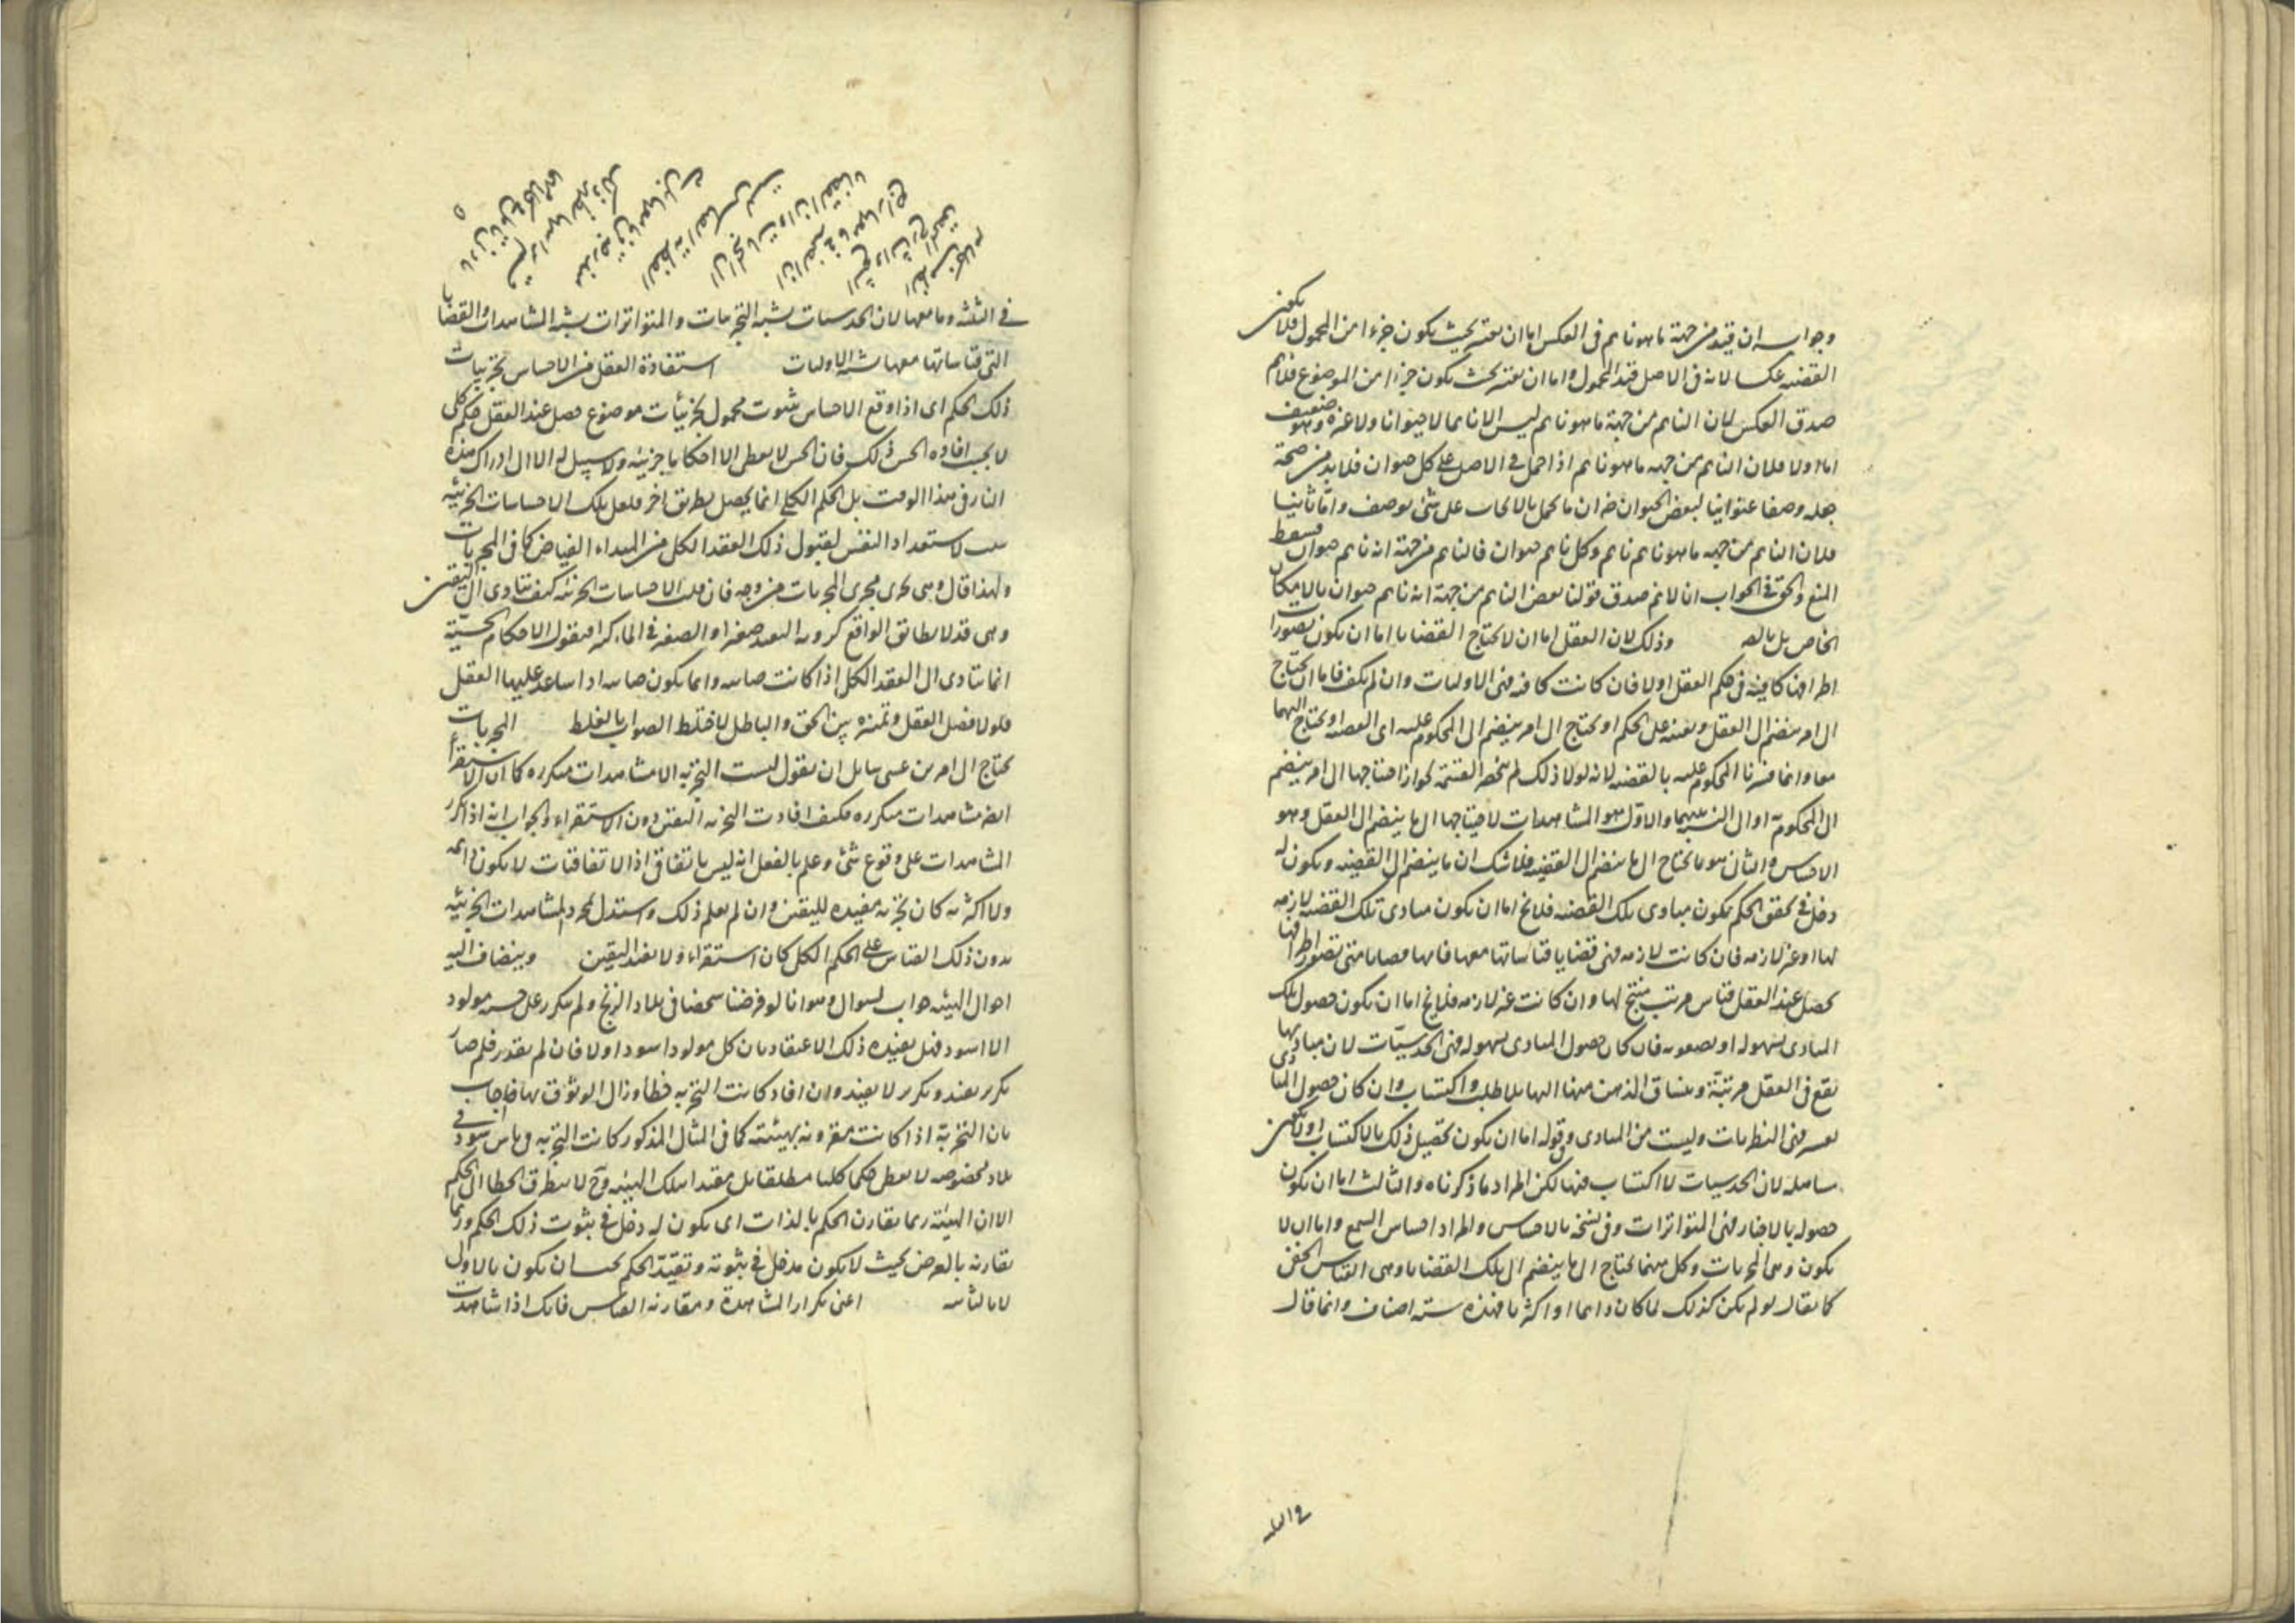 وجوابه ان قيد من جهة ما هو نايم فى العكس اما ان يعتبر بحيث يكون جزءا من المحمول فلا يكون
القضيه عكسا لانه فى الاصل قيد المحمول واما ان يعتبر بحيث يكون جزءا من الموضوع فلا نم
صدق العكس لان النايم من جهة ما هو نايم ليس الا نايما لا حيوانا ولا غيره وهو ضعيف
اما اولا فلان النايم من جهه ما هو نايم اذا حمل فى الاصل على كل حيوان فلا بد من صحة
جعله وصفا عنوانيا لبعض الحيوان ضره ان ما يحمل بالايجاب على شئ يوصف واما ثانيا
فلان النايم من جهه ما هو نايم نايم وكل نايم حيوان فالنايم من جهة انه نايم حيوان فسقط
المنع والحق فى الجواب انا لا نم صدق قولنا بعض النايم من جهة انه نايم حيوان بالامكان
الخاص بل بالضـ وذلك لان العقل اما ان لا يحتاج القضايا اما ان يكون تصورا
اطرافها كافية فى حكم العقل اولا فان كانت كافيه فهى الاوليات وان لم يكف فاما ان يحتاج
الى امر ينضم الى العقل ويعينه على الحكم او يحتاج الى امر ينضم الى المحكوم عليه اى القضيه او يحتاج اليهما
معا وانما فسرنا المحكوم عليه بالقضيه لانه لولا ذلك لم ينحصر القسمة لجواز احتياجها الى امر ينضم
الى المحكوم به او الى النسبة بينهما والاول هو المشاهدات لاحتياجها الى ما ينضم الى العقل وهو
الاحساس والثانى هو ما يحتاج الى ما ينضم الى القضيه فلا شك ان ما ينضم الى القضيه ويكون له
دخل فى تحقق الحكم يكون مبادى تلك القضيه فلا يخ اما ان يكون مبادى تلك القضيه لازمه
لها او غير لازمه فان كانت لازمه فهى قضايا قياساتها معها فانها قضايا متى تصور اطرافها
يحصل عند العقل قياس مرتب منتج لها وان كانت غير لازمه فلا يخ اما ان يكون حصول تلك
المبادى بسهوله او بصعوبه فان كان حصول المبادى بسهوله فهى الحدسيات لان مباديها
تقع فى العقل مرتبة وينساق الذهن منها اليها بلا طلب واكتساب وان كان حصول المبادى
بعسر فهى النظريات وليست من المبادى وقوله اما ان يكون تحصيل ذلك بالاكتساب او يكون
ساهله لان الحدسيات لا اكتساب فيها لكن المراد ما ذكرناه والثالث اما ان يكون
حصوله بالاخبار فهى المتواترات وفى نسخه بالاحساس والمراد احساس السمع واما ان لا
يكون وهى المجربات وكل منهما يحتاج الى ما ينضم الى تلك القضايا وهى القياس الخفى
كما يقال لو لم يكن كذلك لما كان دايما او اكثريا فهذه سته اصناف وانما قال
فى الثلثه
فى الثلثه وما معها لان الحدسيات يشبه التجربيات والمتواترات يشبه المشاهدات والقضايا
التى قياساتها معها يشبه الاوليات استفادة العقل من الاحساس بجزئيات
ذلك الحكم اى اذا وقع الاحساس بثبوت محمول لجزئيات موضوع حصل عند العقل حكم كلى
لا يجب افاده الحس ذلك فان الحس لا يعطى الا احكاما جزئيه ولا سبيل له الا الى ادراك هذه
النار فى هذا الوقت بل الحكم الكلى انما يحصل بطريق اخر فلعل تلك الاحساسات الجزئيه
سبب لاستعداد النفس لقبول ذلك العقد الكلى من المبداء الفياض كما فى المجربات
ولهذا قال وهى تجرى مجرى المجربات من وجه فان قلت الاحساسات الجزئيه كيف تتادى الى اليقين
وهى قد لا يطابق الواقع كرويه البعيد صغيرا والصغير فى الماء كبيرا فنقول الاحكام الحسية
انما تتادى الى العقد الكلى اذا كانت صايبه وانما يكون صايبه اذا ساعد عليها العقل
فلولا فصل العقل وتميزه بين الحق والباطل لاختلط الصواب بالغلط المجربات
يحتاج الى امرين عسى سايل ان يقول ليست التجربه الا مشاهدات متكرره كما ان الاستقراء
ايضا مشاهدات متكرره فكيف افادت التجربه اليقين دون الاستقراء والجواب انه اذا تكرر
المشاهدات على وقوع شئ وعلم بالفعل انه ليس باتفاق اذ الاتفاقات لا يكون دائمه
ولا اكثريه كان تجربه مفيده لليقين وان لم يعلم ذلك واستدل بمجرد المشاهدات الجزئيه
بدون ذلك القياس على الحكم الكلى كان استقراء ولا يفيد اليقين وينضاف اليه
احوال الهيئه جواب لسوال وهو انا لو فرضنا شخصا فى بلاد الزنج ولم يتكرر على حسه مولود
الا اسود فهل يفيده ذلك الاعتقاد بان كل مولود اسود او لا فان لم يفد فلم صار
تكرر يفيد وتكرر لا يفيد وان افاد كانت التجربه خطأ وزال الوثوق بها فاجاب
بان التجربة اذا كانت مقرونه بهيئته كما فى المثال المذكور كانت التجربه وهاس اسود فى
بلاد مخصوصه لا يعطى حكما كليا مطلقا بل مقيدا بتلك الهيئه وح لا يتطرق الخطا الى الحكم
الا ان الهيئة ربما يقارن الحكم بالذات اى يكون له دخل فى ثبوت ذلك الحكم وربما
يقارنه بالعرض بحيث لا يكون مدخل فى ثبوته وتقيد الحكم يجب ان يكون بالاول
لا بالثانى اعنى تكرار المشاهدة ومقارنه القياس فانك اذا شاهدت